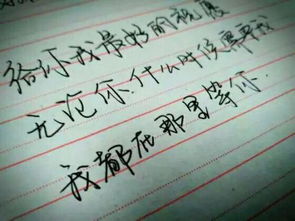 给你我最好的祝愿
无论你什么时候需要我
我都在那里等你.